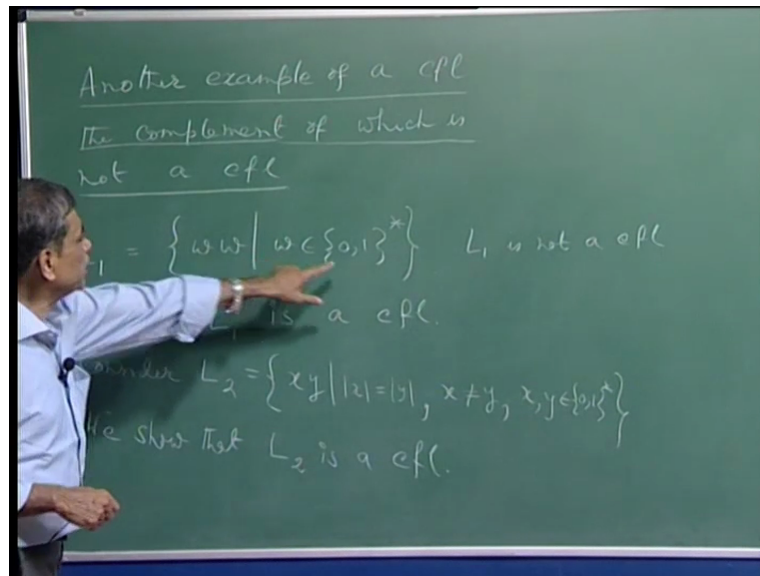 Another example of a cfl
The complement of which is
not a cfl
1 = { ww | w ∈ {0,1}* } L₁ is not a cfl
L₁ is a cfl.
onsider L₂ = { xy | |x| = |y|, x ≠ y, x, y ∈ {0,1}* }
We show that L₂ is a cfl.